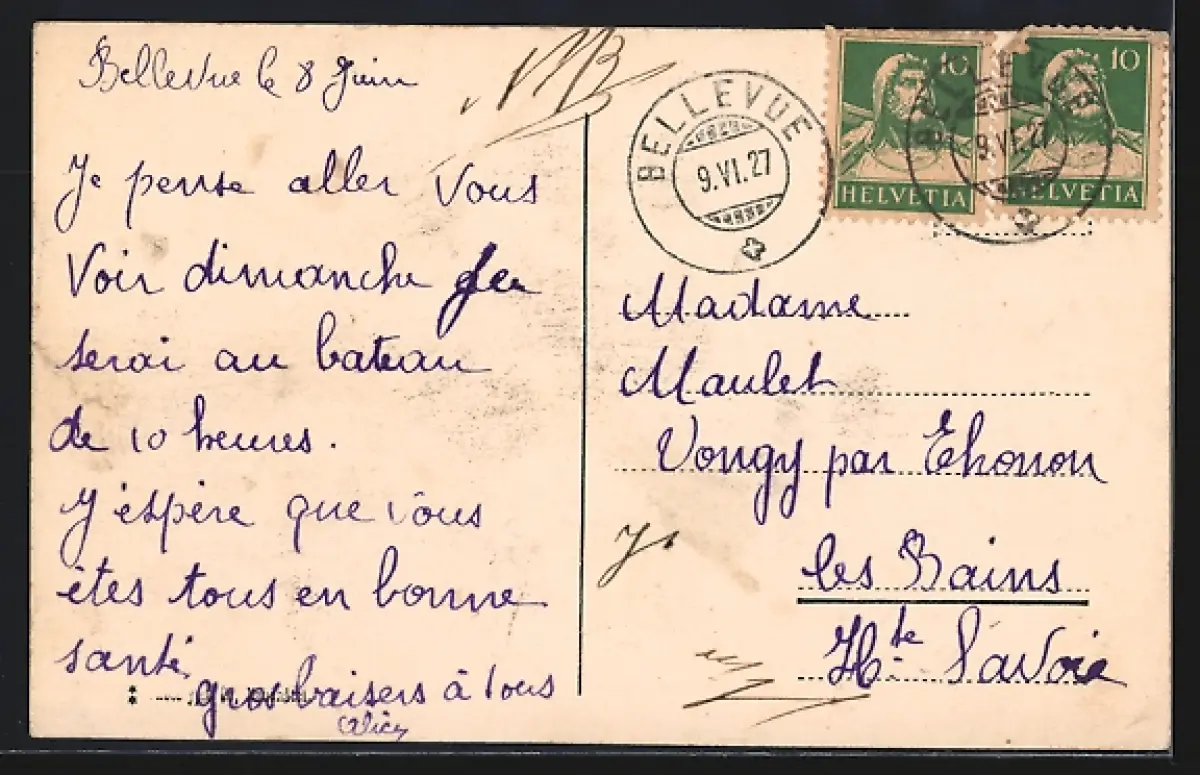 Bellevue le 8 Juin
Je pense aller vous
Voir dimanche Je
serai au bateau
de 10 heures.
J'espère que vous
êtes tous en bonne
santé
gros baisers à tous
BELLEVUE
9.VI.27
10
HELVETIA
BELLEVUE
9.VI.27
10
HELVETIA
Madame
Maulet
Vongy par Thonon
les Bains
Hte Savoie